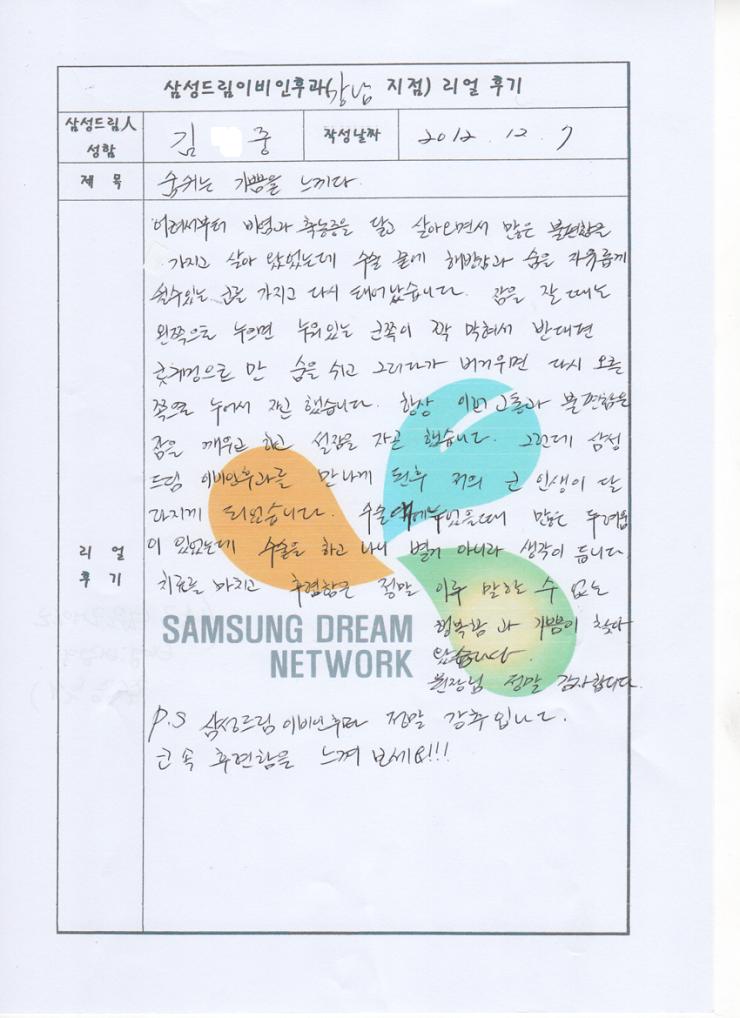 삼성드림이비인후과(강남 지점) 리얼 후기
삼성드림人 성함
김 중
작성날짜
2012. 12. 7
제 목
숨쉬는 기쁨을 느끼다.
리 얼 후 기
어려서부터 비염과 축농증을 달고 살아오면서 많은 불편함을
가지고 살아 왔었는데 수술 끝에 해방감과 숨을 자유롭게
쉴수있는 코를 가지고 다시 태어났습니다. 잠을 잘 때는
왼쪽으로 누우면 누워있는 코쪽이 꽉 막혀서 반대편
콧구멍으로 만 숨을 쉬고 그러다가 버거우면 다시 오른
쪽으로 누어서 자곤 했습니다. 항상 이런 고통과 불편함은
잠을 깨우곤 하고 설잠을 자곤 했습니다. 그런데 삼성
드림 이비인후과를 만나게 된후 저의 코 인생이 달
라지게 되었습니다. 수술대에 누웠을때 많은 두려움
이 있었는데 수술을 하고 나니 별거 아니라 생각이 듭니다.
치료를 마치고 후련함은 정말 이루 말할 수 없는
행복함 과 기쁨이 찾아
왔습니다.
원장님 정말 감사합니다.
P.S 삼성드림 이비인후과 정말 강추입니다.
코 속 후련함을 느껴 보세요!!!
SAMSUNG DREAM
NETWORK